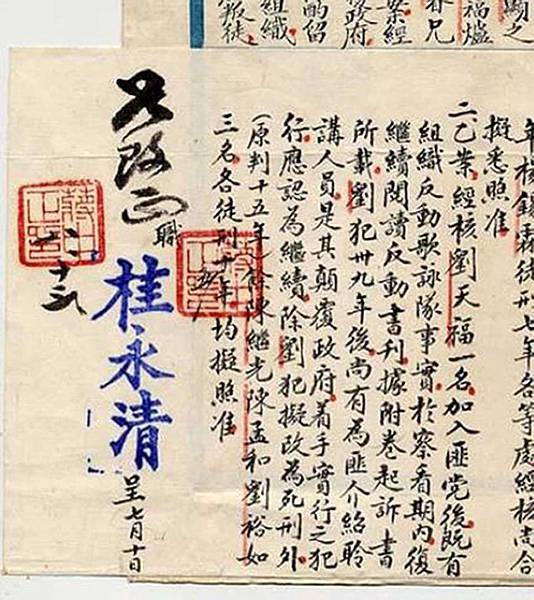 福爐
案經
政府
酌留
組織
叛徒
徒刑七年各等處經核尚合
擬悉照准
二乙案經核劉天福一名加入匪党後既有
組織反動歌詠隊事實於察看期內復
繼續閱讀反動書刊據附卷起訴書
所載劉犯卅九年後尚有為匪介紹聆
講人員是其顛覆政府着手實行之犯
行應認為繼續除劉犯擬改為死刑外
(原判十五年)餘陳繼光陳孟和劉裕如
三名各徒刑十年均擬照准
職桂永清呈七月十日
改正